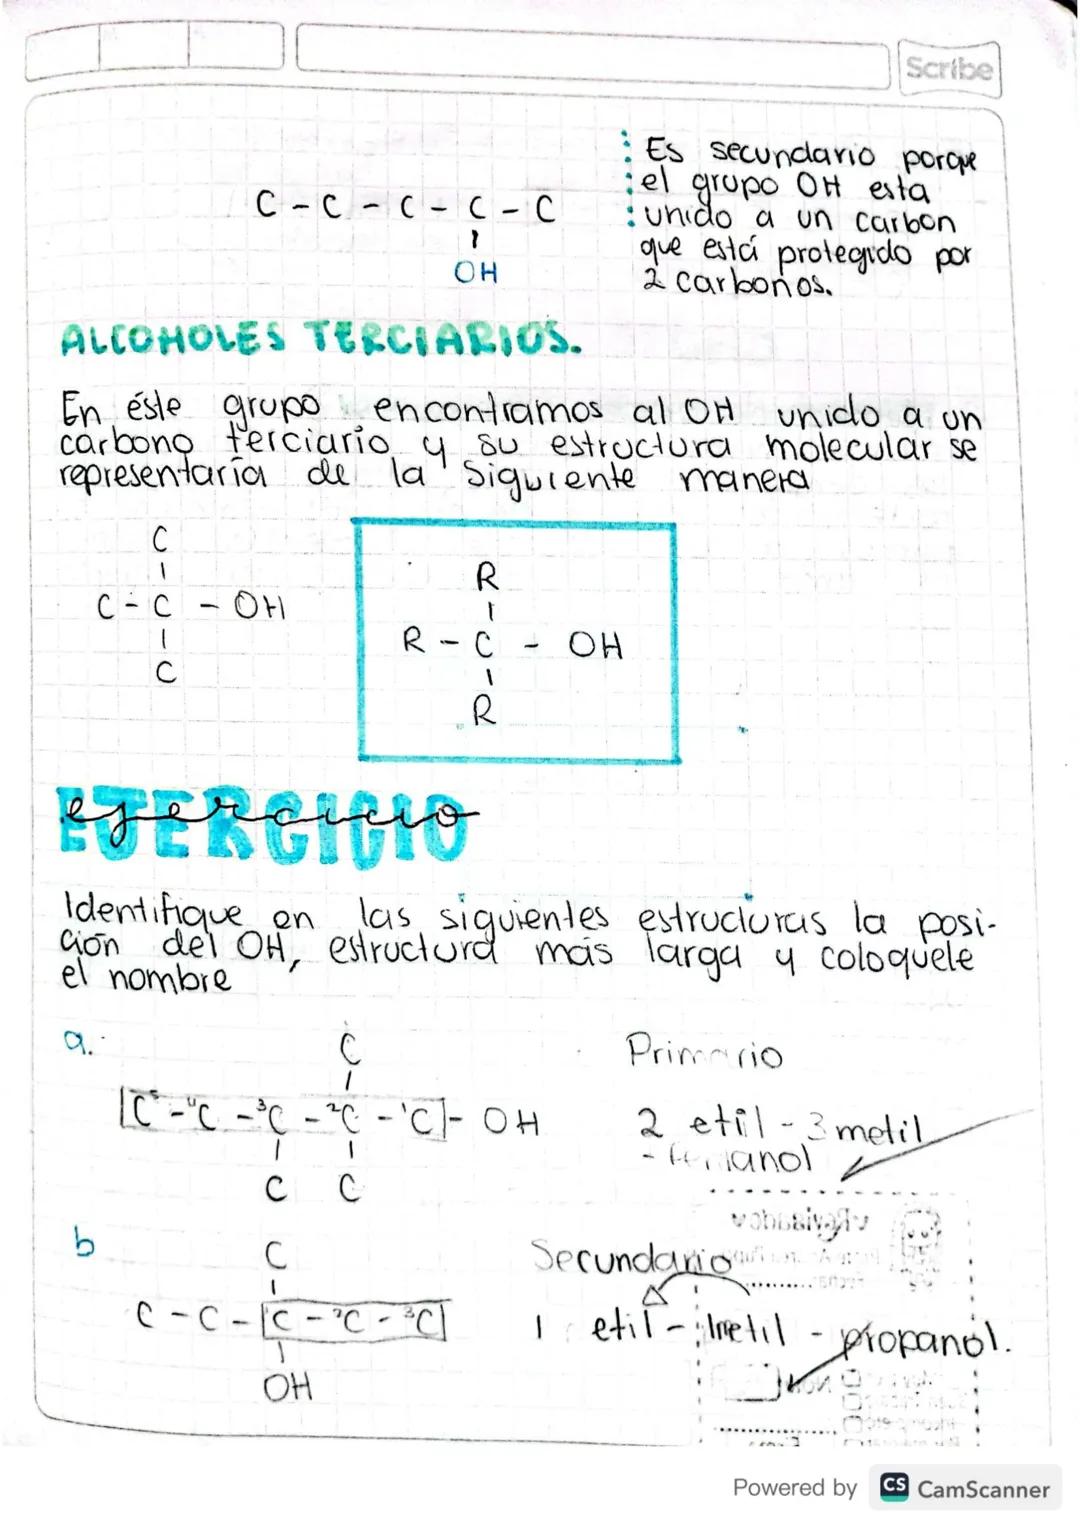 Scribe
Es secundario porque
el grupo OH esta
unido a un carbon
que está protegido por
2 carbonos.
C - C - C - C - C
OH
ALCOHOLES TERCIARIOS.
En éste grupo encontramos al OH unido a un
carbono terciario y su estructura molecular se
representaría de la siguiente manera
C
C - C - OH
C
R
R - C - OH
R
EJERCICIO
ejercicio
Identifique en las siguientes estructuras la posi-
ción del OH, estructura más larga y coloquele
el nombre
a.
C
C⁵ - ⁴C - ³C - ²C - ¹C - OH
C C
Primario
2 etil - 3 metil
b
C
C - C - C - ²C - ³C
OH
Secundario
1 etil - 1metil - propanol.
Powered by CS CamScanner